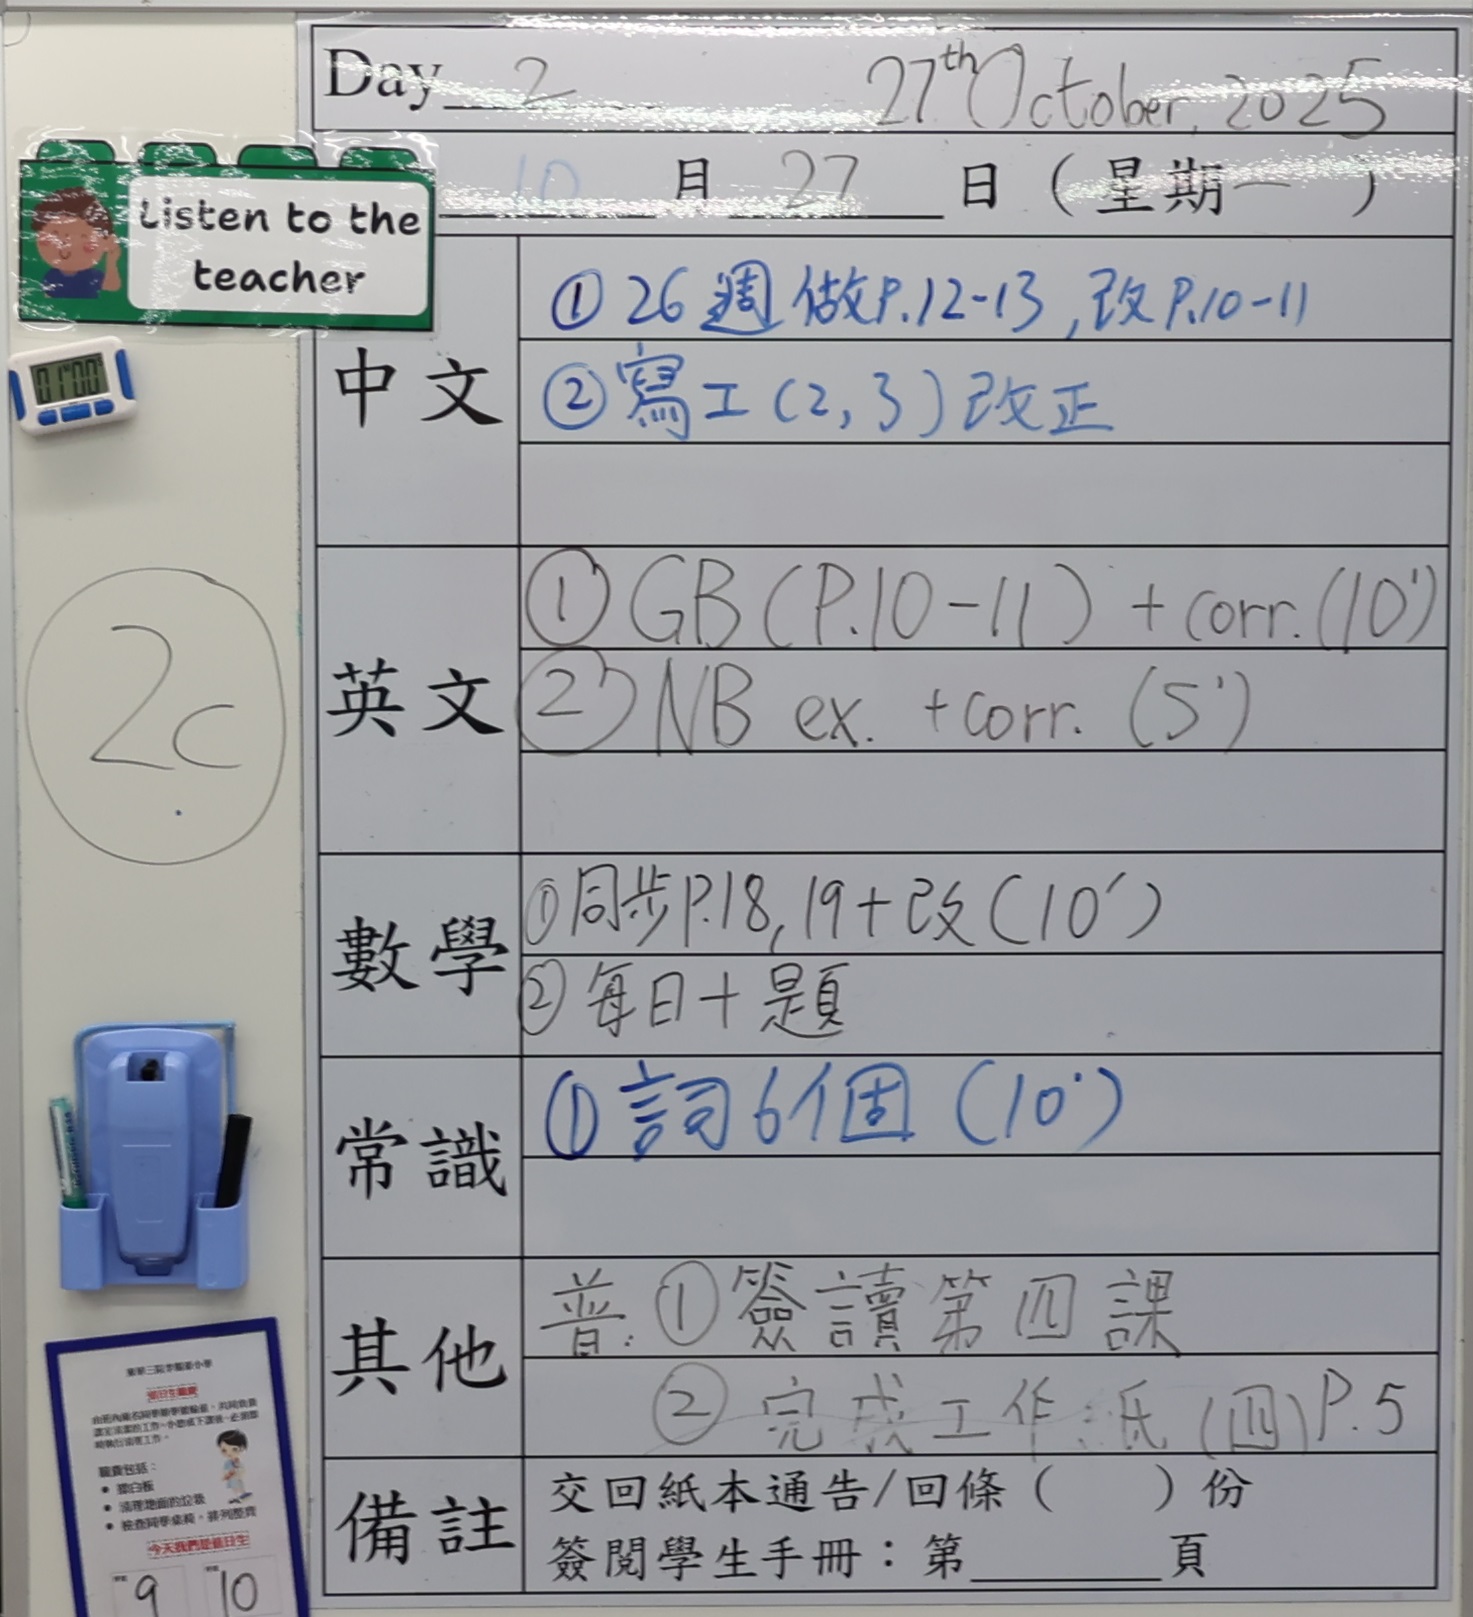 Day 2 27th October, 2025
10 月 27 日 ( 星期一 )
Listen to the
teacher
01'00
中文
① 26週 做P.12-13, 改P.10-11
② 寫工 (2, 3) 改正
2C
英文
① GB (P.10-11) + corr. (10')
② NB ex. + corr. (5')
數學
① 同步P.18, 19+改 (10')
② 每日十題
常識
① 詞6個 (10')
其他
普: ① 簽讀第四課
② 完成工作紙 (四) P.5
備註
交回紙本通告/回條 ( ) 份
簽閱學生手冊：第 頁
值日生職責
職責包括：
擦白板
清理地面的垃圾
檢查同學桌椅，排列整齊
今天我們是值日生
9 10